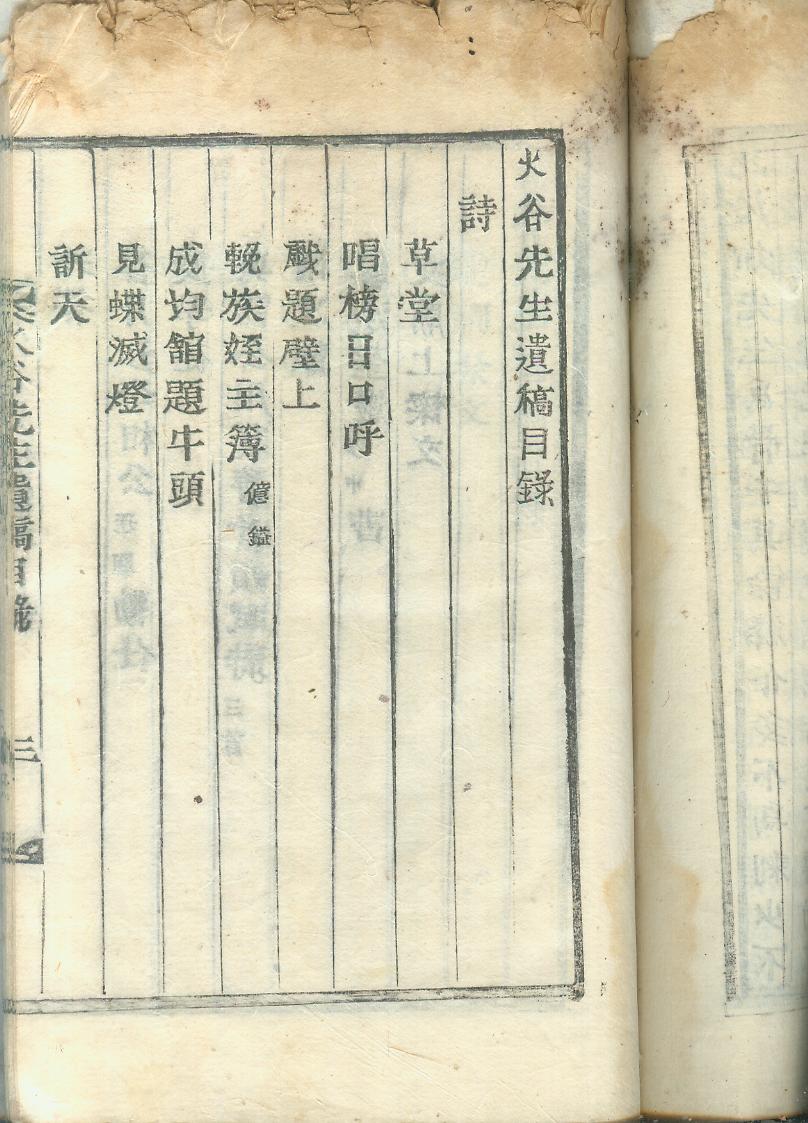 火谷先生遺稿目錄
詩
草堂
唱榜日口呼
戱題壁上
輓族姪主簿億鎰
成均館題牛頭
見蝶滅燈
訢天
火谷先生遺稿目錄 三